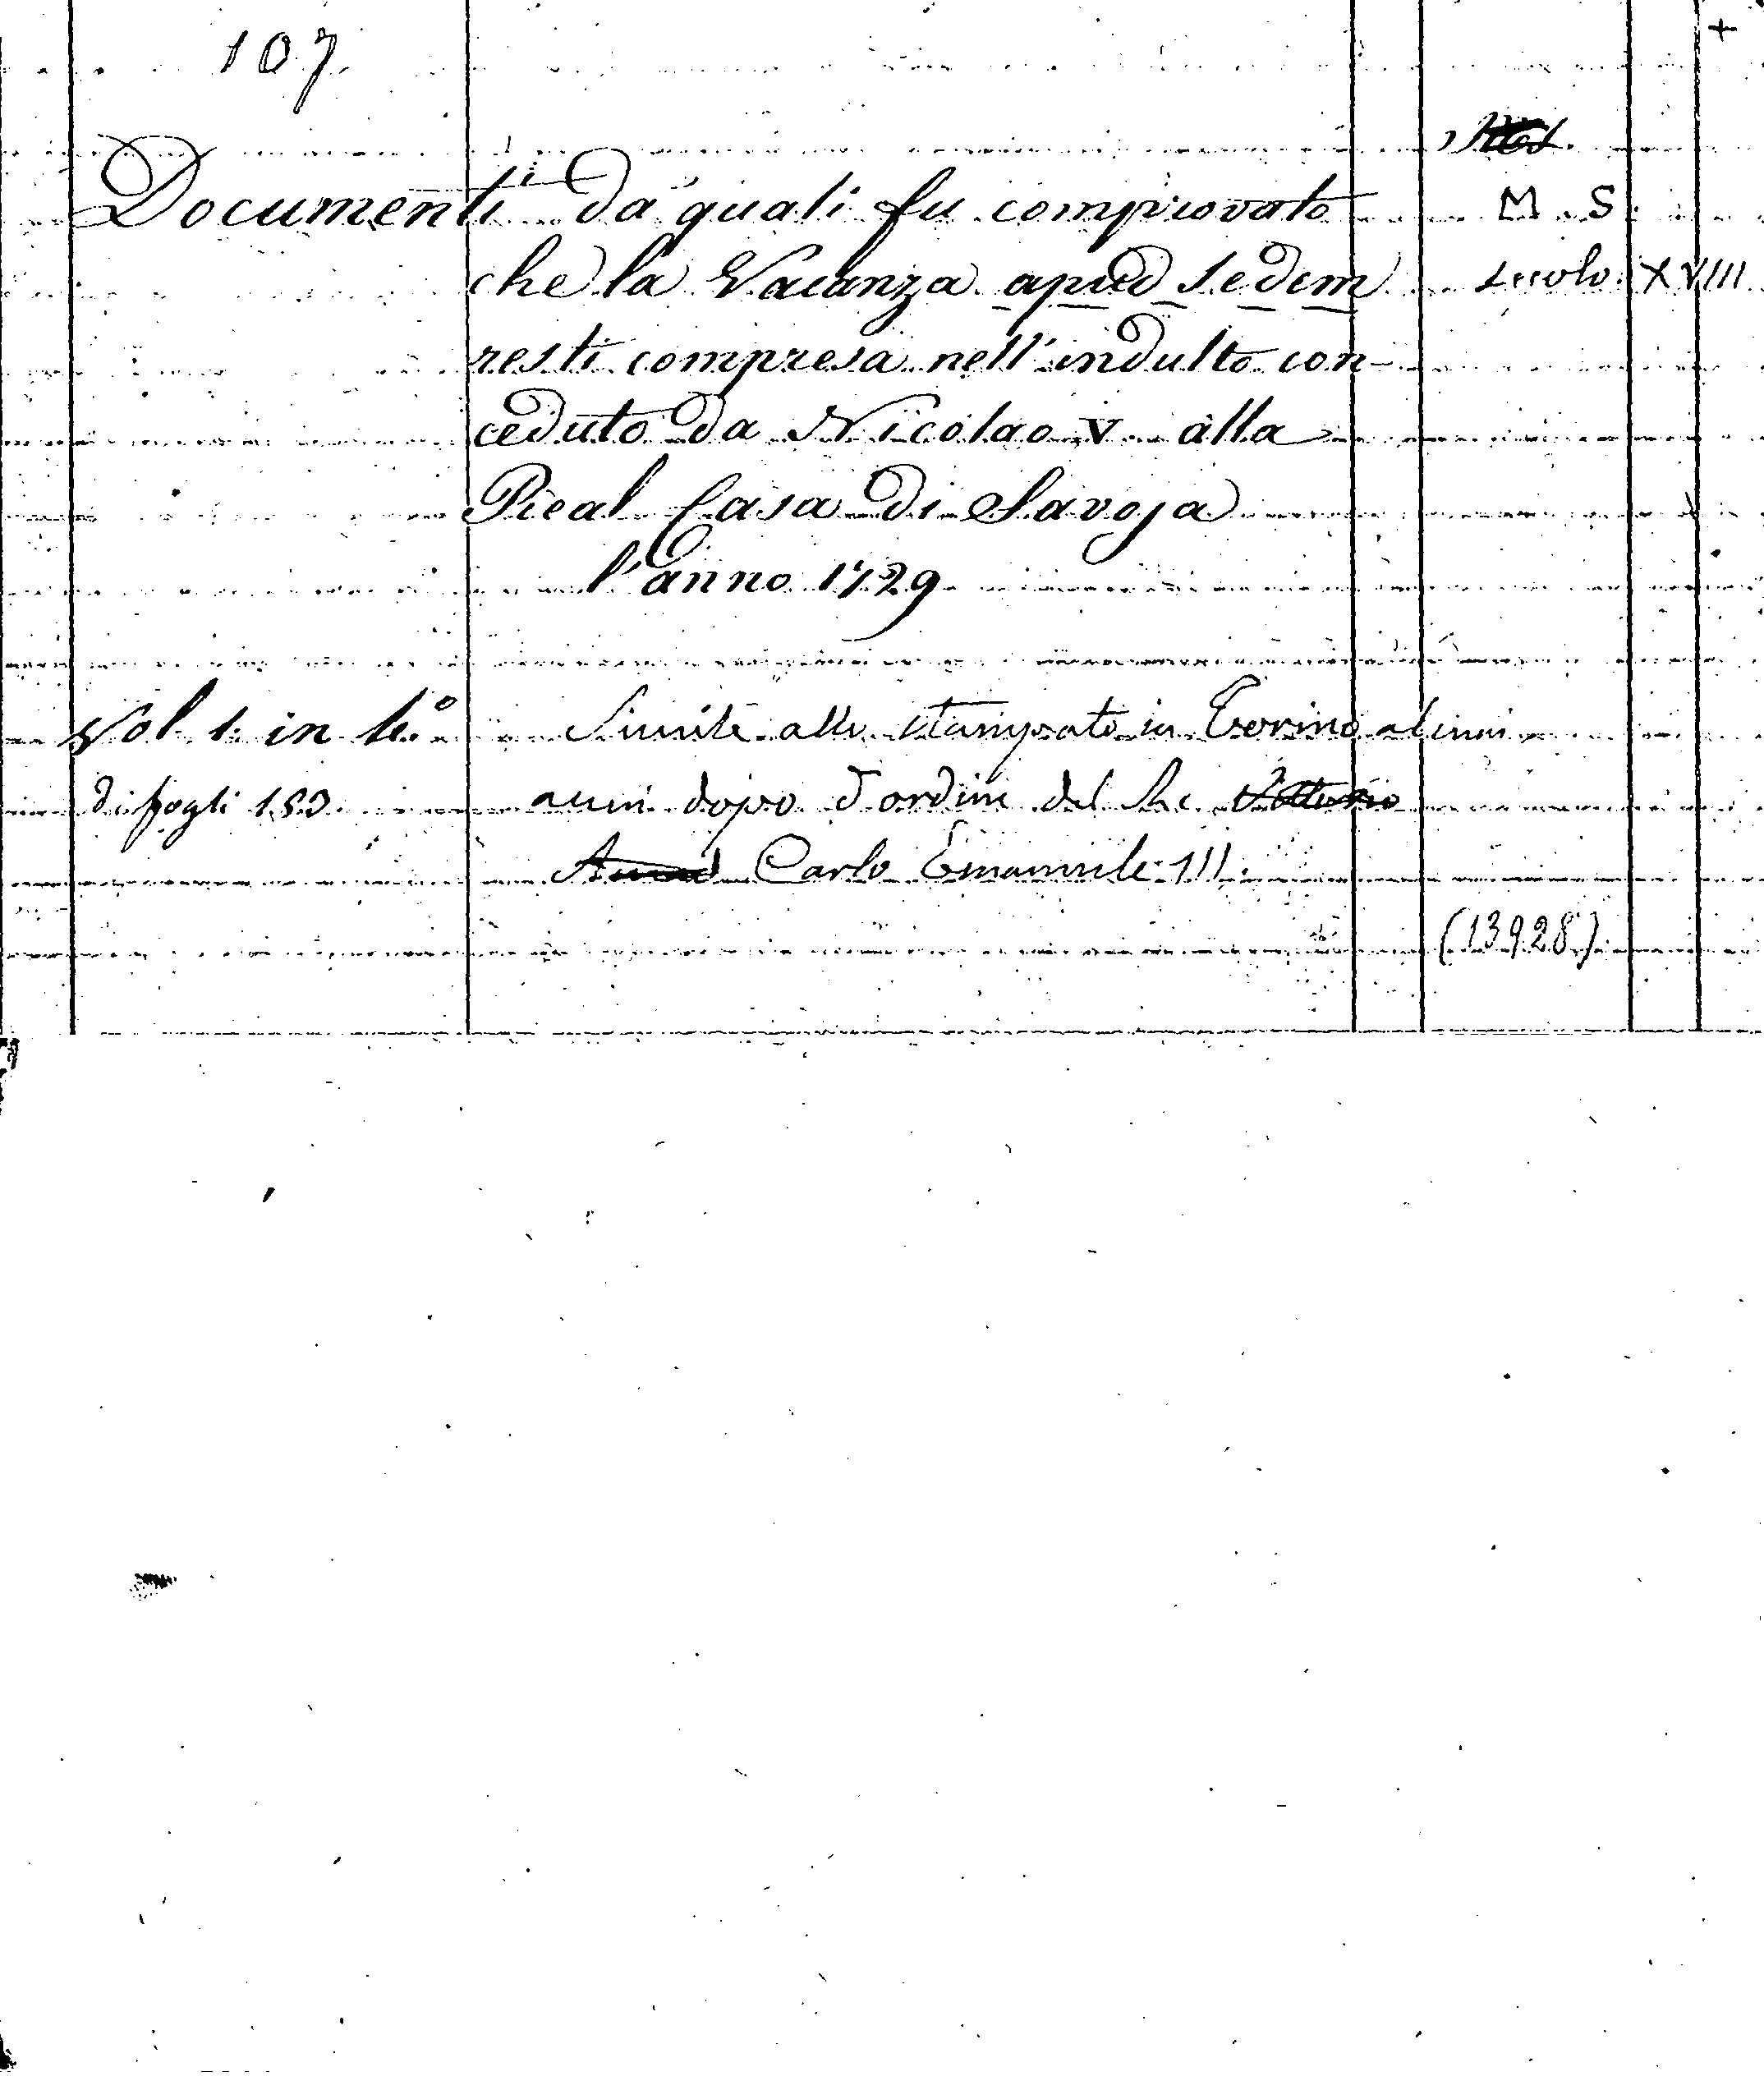 107.
+
Documenti da quali fu comprovato
M. S.
che la Vacanza apud Sedem
secolo XVIII
resti compresa nell'indulto con-
ceduto da Nicolao V. alla
Real Casa di Savoja
l'anno 1729
Vol. 1. in 4.°
Simile allo stampato in Torino alcuni
di fogli 180.
anni dopo d'ordine del Re Vittorio
Amed Carlo Emanuele III.
(13928)